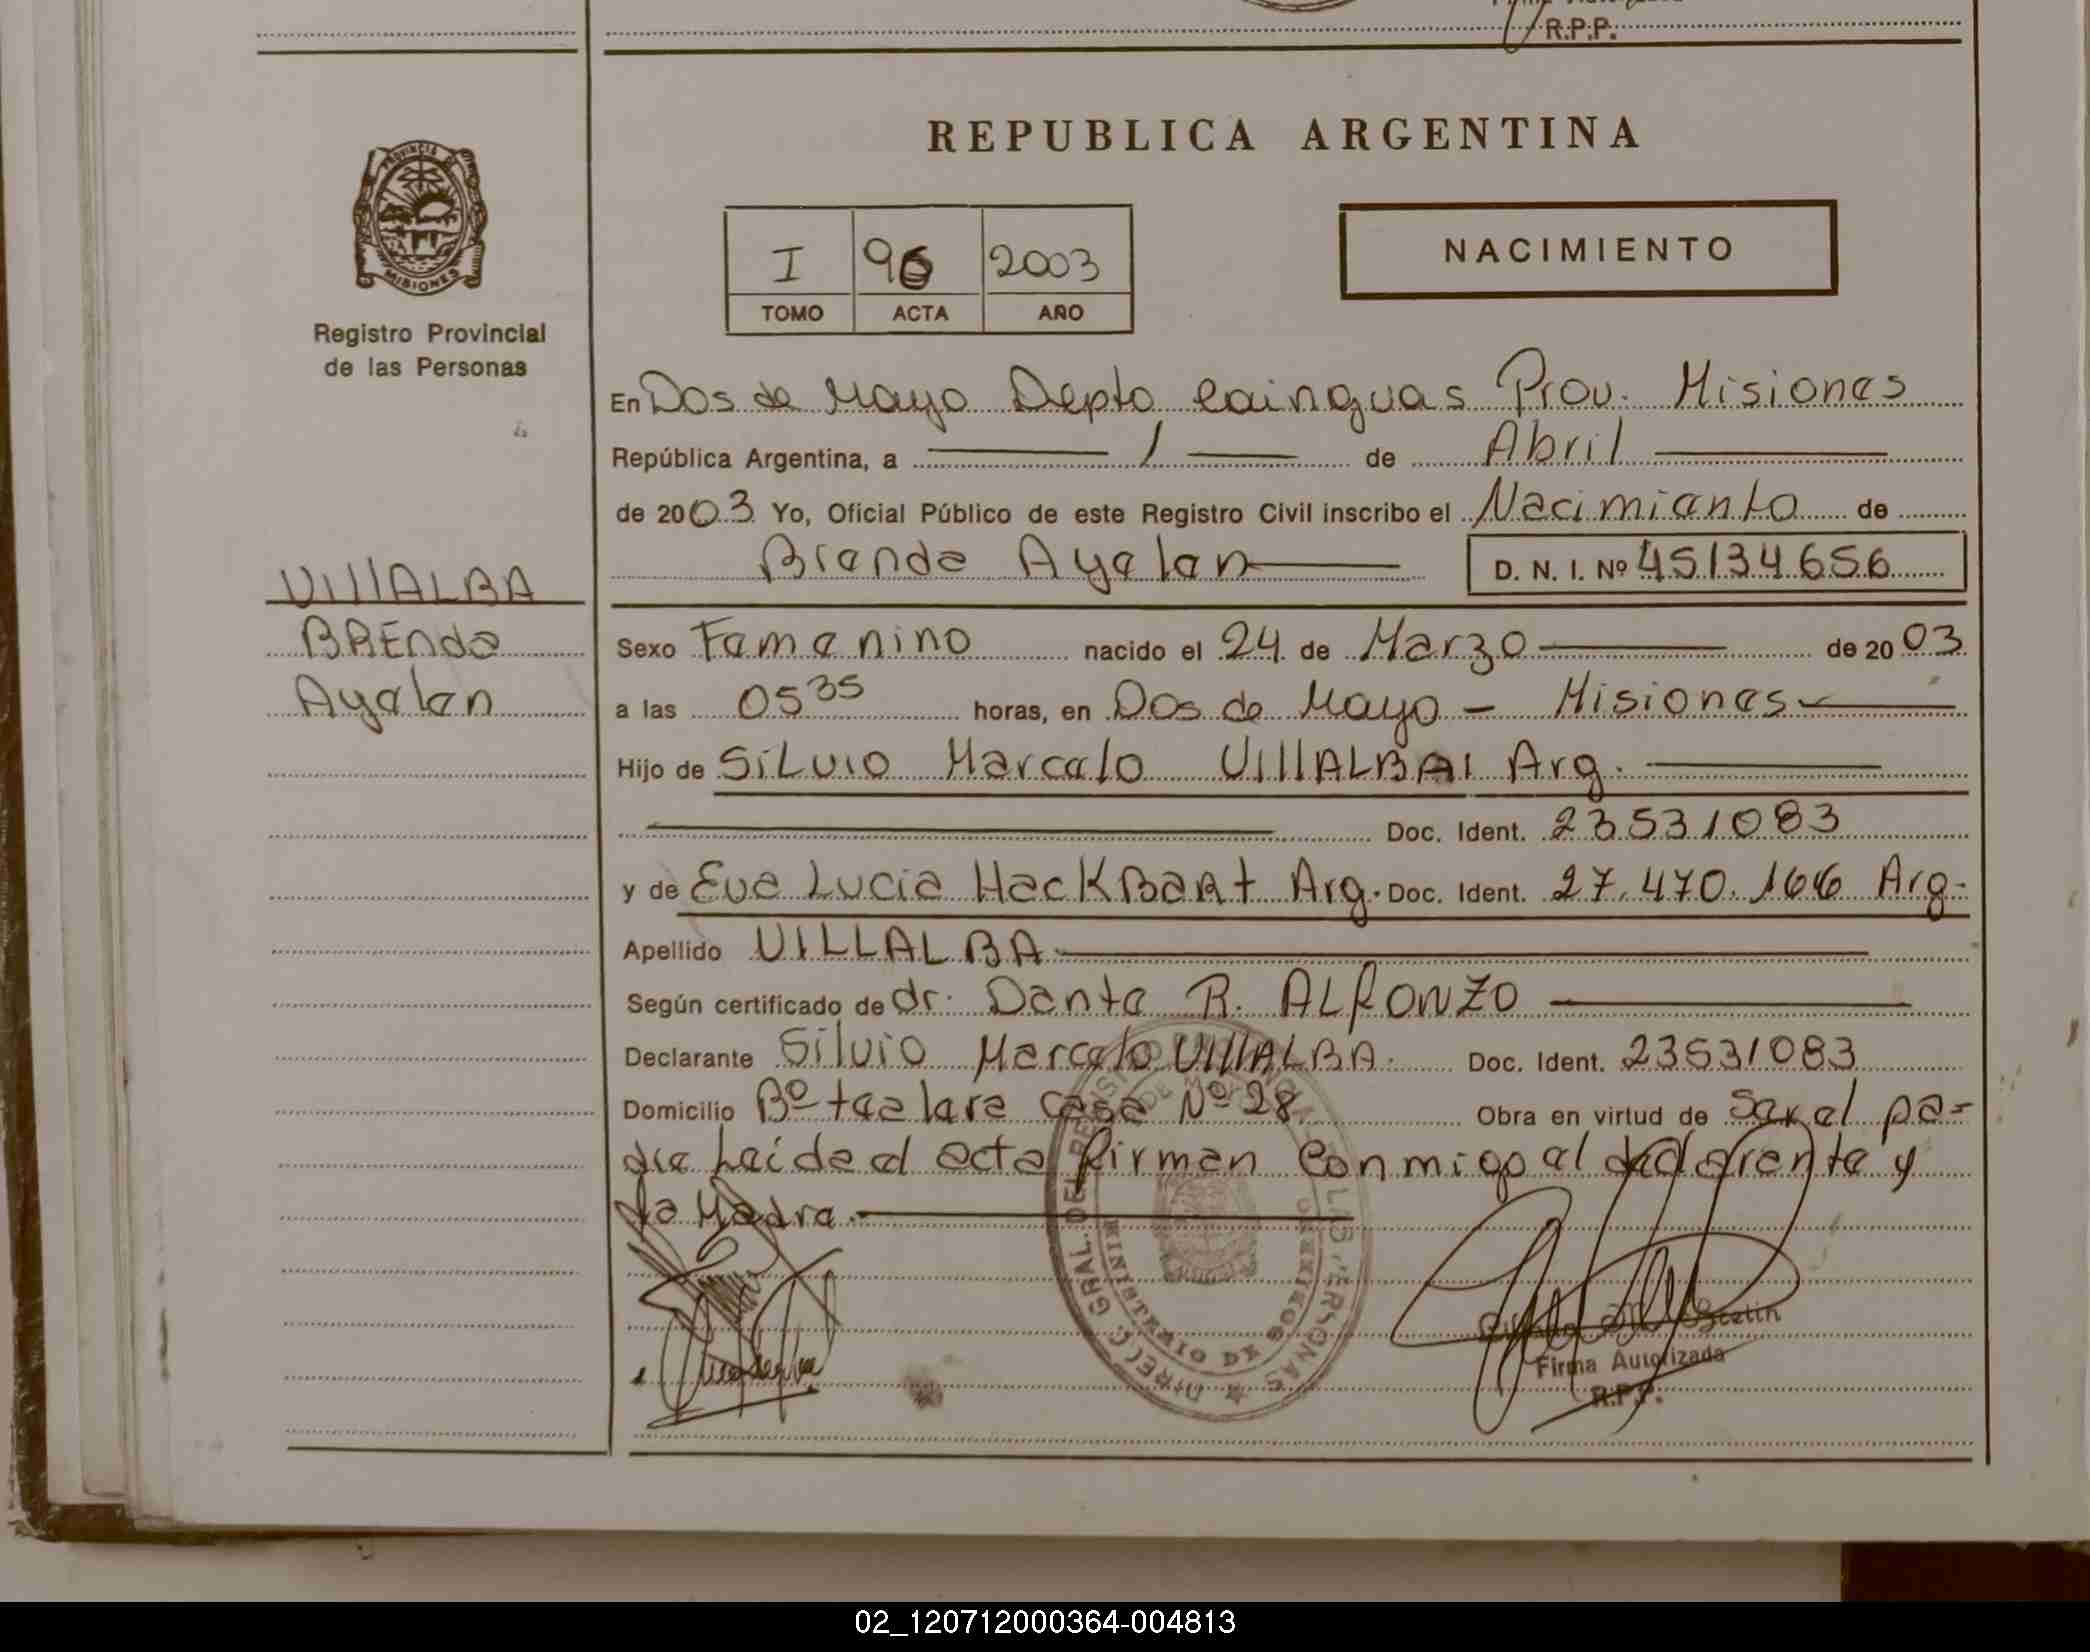 R.P.P.
REPUBLICA ARGENTINA
PROVINCIA DE
MISIONES
Registro Provincial
de las Personas
I 96 2003
TOMO ACTA AÑO
NACIMIENTO
En Dos de Mayo Depto Cainguas Prov. Misiones
República Argentina, a 1 de Abril
de 2003 Yo, Oficial Público de este Registro Civil inscribo el Nacimiento de
Brenda Ayelen D. N. I. Nº 45134656
VIllALBA
BREnda
Ayelen
Sexo Femenino nacido el 24 de Marzo de 2003
a las 05 35 horas, en Dos de Mayo - Misiones
Hijo de SiLvio Marcelo VIllALBA Arg.
Doc. Ident. 23531083
y de Eva Lucia HacKBaRt Arg. Doc. Ident. 27.470.166 Arg.
Apellido VILLALBA
Según certificado de dr. Dante R. ALFONZO
Declarante Silvio Marcelo VIllALBA. Doc. Ident. 23531083
Domicilio Bº taclara casa Nº 28 Obra en virtud de Ser el pa-
dre Leida el acta firman Conmigo el declarante y
la Madre.
DIREC. GRAL. DEL REGISTRO PROVINCIAL DE LAS PERSONAS
MINISTERIO DE GOBIERNO
Firma Autorizada
R.P.P.
02_120712000364-004813